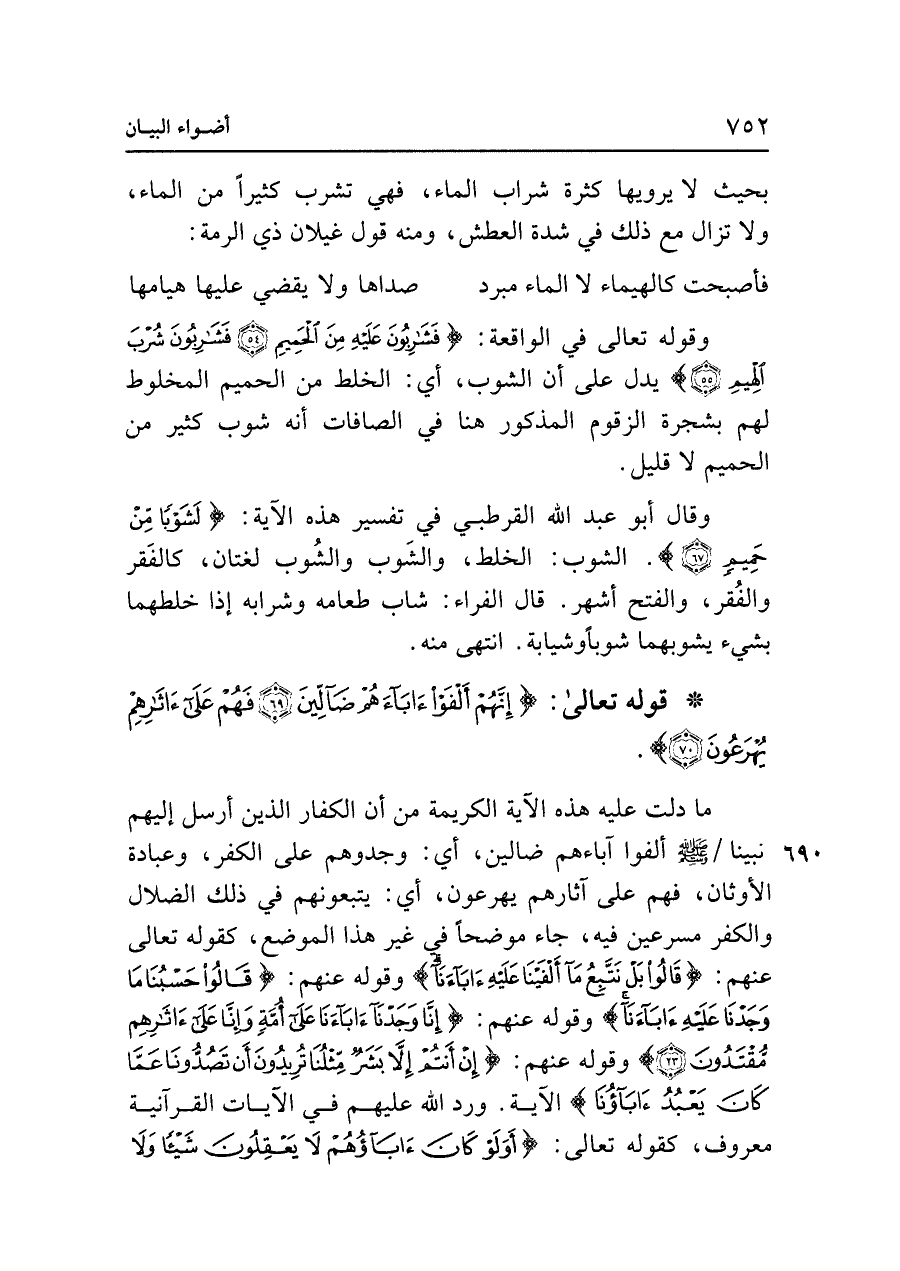 ٧٥٢ أضواء البيان
بحيث لا يرويها كثرة شراب الماء، فهي تشرب كثيراً من الماء،
ولا تزال مع ذلك في شدة العطش، ومنه قول غيلان ذي الرمة:
فأصبحت كالهيماء لا الماء مبرد صداها ولا يقضي عليها هيامها
وقوله تعالى في الواقعة: ﴿ فَشَٰرِبُونَ عَلَيْهِ مِنَ ٱلْحَمِيمِ ٥٤ فَشَٰرِبُونَ شُرْبَ
ٱلْهِيمِ ٥٥﴾ يدل على أن الشوب، أي: الخلط من الحميم المخلوط
لهم بشجرة الزقوم المذكور هنا في الصافات أنه شوب كثير من
الحميم لا قليل.
وقال أبو عبد الله القرطبي في تفسير هذه الآية: ﴿ لَشَوْبًا مِّنْ
حَمِيمٍ ٦٧﴾. الشوب: الخلط، والشَوب والشُوب لغتان، كالفَقر
والفُقر، والفتح أشهر. قال الفراء: شاب طعامه وشرابه إذا خلطهما
بشيء يشوبهما شوباً وشيابة. انتهى منه.
* قوله تعالىٰ: ﴿ إِنَّهُمْ أَلْفَوْا۟ ءَابَآءَهُمْ ضَآلِّينَ ٦٩ فَهُمْ عَلَىٰٓ ءَاثَٰرِهِمْ
يُهْرَعُونَ ٧٠﴾.
ما دلت عليه هذه الآية الكريمة من أن الكفار الذين أرسل إليهم
٦٩٠ نبينا / ﷺ ألفوا آباءهم ضالين، أي: وجدوهم على الكفر، وعبادة
الأوثان، فهم على آثارهم يهرعون، أي: يتبعونهم في ذلك الضلال
والكفر مسرعين فيه، جاء موضحاً في غير هذا الموضع، كقوله تعالى
عنهم: ﴿ قَالُوا۟ بَلْ نَتَّبِعُ مَآ أَلْفَيْنَا عَلَيْهِ ءَابَآءَنَآ﴾ وقوله عنهم: ﴿ قَالُوا۟ حَسْبُنَا مَا
وَجَدْنَا عَلَيْهِ ءَابَآءَنَآ﴾ وقوله عنهم: ﴿ إِنَّا وَجَدْنَآ ءَابَآءَنَا عَلَىٰٓ أُمَّةٍ وَإِنَّا عَلَىٰٓ ءَاثَٰرِهِم
مُّقْتَدُونَ ٢٣﴾ وقوله عنهم: ﴿ إِنْ أَنتُمْ إِلَّا بَشَرٌ مِّثْلُنَا تُرِيدُونَ أَن تَصُدُّونَا عَمَّا
كَانَ يَعْبُدُ ءَابَآؤُنَا ﴾ الآية. ورد الله عليهم في الآيات القرآنية
معروف، كقوله تعالى: ﴿ أَوَلَوْ كَانَ ءَابَآؤُهُمْ لَا يَعْقِلُونَ شَيْـًٔا وَلَا